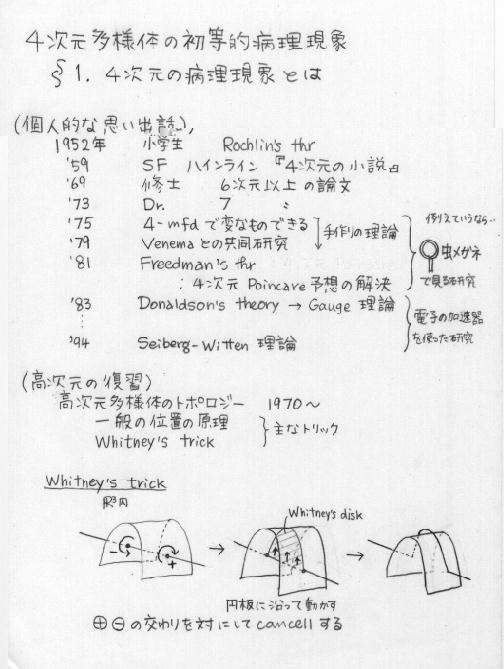 4次元多様体の初等的病理現象
§1. 4次元の病理現象とは
(個人的な思い出話),
1952年 小学生 Rochlin's thr
'59 SF ハインライン 『4次元の小説』
'69 修士 6次元以上の論文
'73 Dr. 7 〃
'75 4-mfd で変なものできる
'79 Venema との共同研究
手作りの理論
'81 Freedman's thr
: 4次元 Poincare 予想の解決
例りえていうなら‥
虫メガネ
で見る研究
'83 Donaldson's theory → Gauge 理論
⋮
'94 Seiberg-Witten 理論
電子の加速器
を使った研究
(高次元の復習)
高次元多様体のトポロジー 1970～
一般の位置の原理
Whitney's trick
主なトリック
Whitney's trick
R³内
- +
→ Whitney's disk →
円板に沿って動かす
⊕⊖の交わりを対にしてcancellする